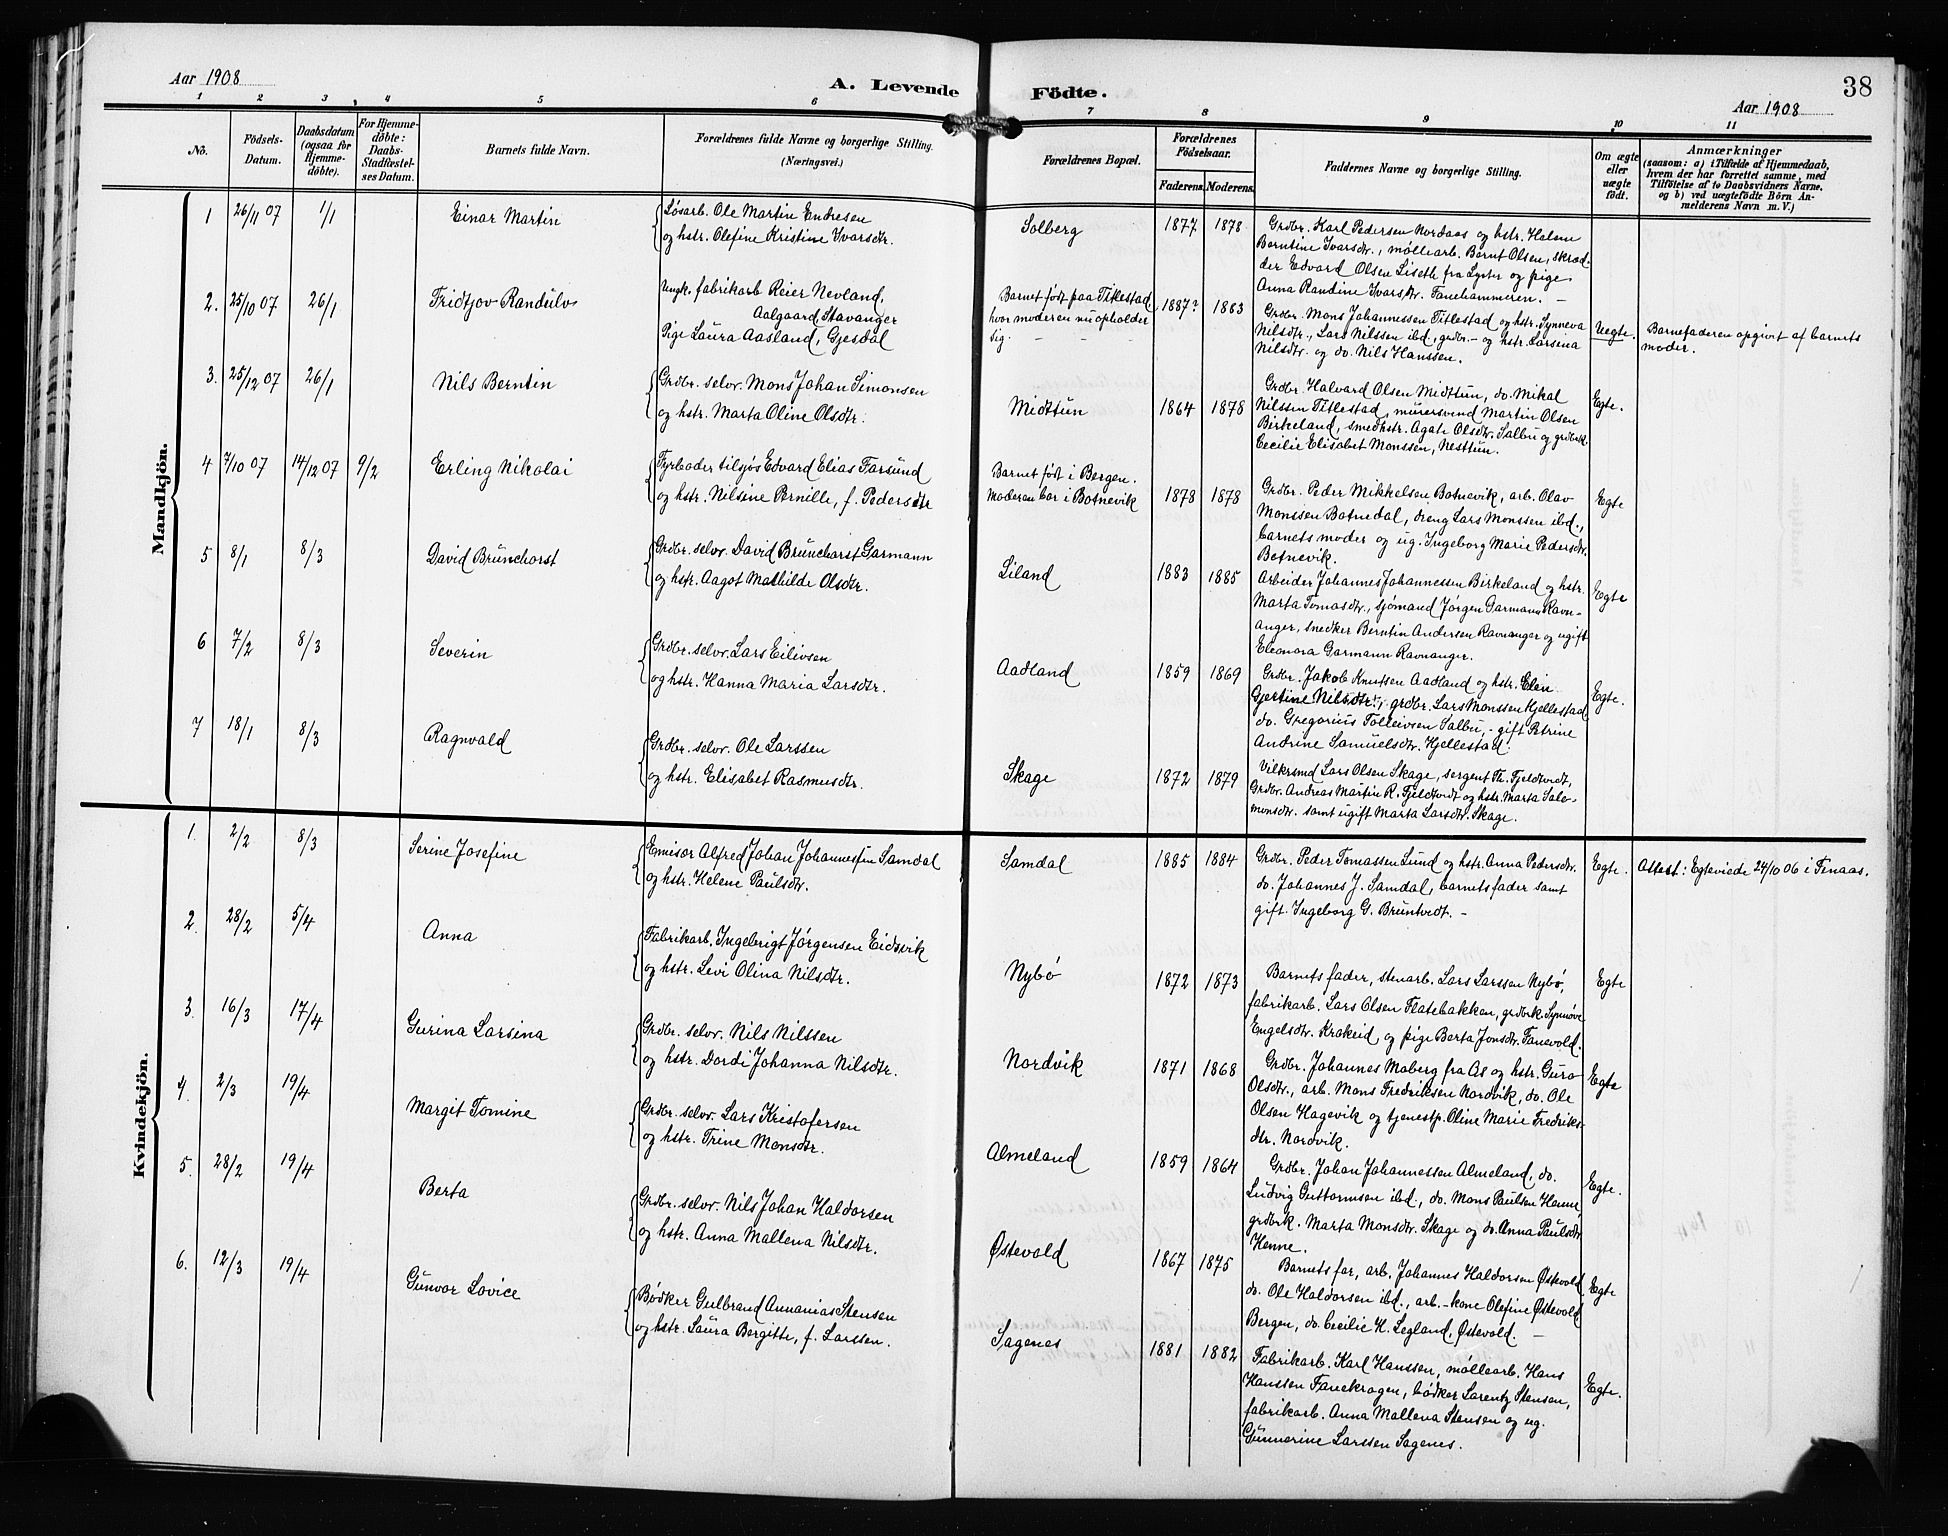 Aar 1908
A. Levende Födte.
38
Aar 1908
1 2 3 4 5 6 7 8 9 10 11
No.
Födsels-
Datum.
Daabsdatum
(ogsaa for
Hjemme-
döbte).
For Hjemme-
döbte:
Daabs-
Stadfæstel-
ses Datum.
Barnets fulde Navn.
Forældrenes fulde Navne og borgerlige Stilling.
(Næringsvei.)
Forældrenes Bopæl.
Forældrenes
Födselsaar.
Faderens.
Moderens.
Faddernes Navne og borgerlige Stilling.
Om ægte
eller
uægte
födt.
Anmærkninger
(saasom: a) i Tilfælde af Hjemmedaab,
hvem der har forrettet samme, med
Tilföielse af to Daabsvidners Navne.
og b) ved uægtefödte Börn An-
melderens Navn m. V.)
Mandkjön.
1 26/11 07 1/1 Einar Martin
Løsarb. Ole Martin Endresen
og hstr. Olefine Kristine Ivarsdtr.
Solberg 1877 1878
Grdbr. Karl Pedersen Nordaas og hstr. Helene
Berntine Ivarsdtr., møllearb. Bernt Olsen, skræd-
der Edvard Olsen Liseth fra Lyster og pige
Anna Randine Ivarsdtr. Fanehammeren. –
2. 25/10 07 26/1 Fridtjov Randulv
Ungk. fabrikarb Reier Nevland,
Aalgaard, Stavanger
Pige Laura Aasland, Gjesdal
Barnet født paa Titlestad,
hvor moderen nu opholder
sig. – – –
1887? 1883
Grdbr. Mons Johannessen Titlestad og hstr. Synneva
Nilsdtr., Lars Nilssen ibd., grdbr. – og hstr. Larsina
Nilsdtr. og do. Nils Hanssen.
Uegte.
Barnefaderen opgivet af barnets
moder.
3. 25/12 07 26/1 Nils Berntin
Grdbr. selv. Mons Johan Simonsen
og hstr. Marta Oline Olsdtr.
Midttun 1864 1878
Grdbr. Halvard Olsen Midttun, do. Mikal
Nilssen Titlestad, murersvend Martin Olsen
Birkeland, smedhstr. Agate Olsdtr. Salbu og grdbrk.
Cecilie Elisabet Monssen, Nesttun.
Egte.
4 7/10 07 14/12 07 9/2 Erling Nikolai
Fyrbøder tilsjøs Edvard Elias Farsund
og hstr. Nilsine Pernille, f. Pedersdtr
Barnet født i Bergen.
Moderen bor i Botnevik
1878 1878
Grdbr. Peder Mikkelsen Botnevik, arb. Olav
Monssen Botnedal, dreng Lars Monssen ibd.,
barnets moder og ug. Ingeborg Marie Pedersdtr.
Botnevik.
Egte
5 8/1 8/3 David Brunchorst
Grdbr. selv. David Brunchorst Garmann
og hstr. Aagot Mathilde Olsdtr.
Liland 1883 1885
Arbeider Johannes Johannessen Birkeland og hstr.
Marta Tomasdtr., sjømand Jørgen Garmann Ravn-
anger, snedker Berntin Andersen Ravnanger og ugift
Eleonora Garmann Ravnanger.
Egte
6 7/2 8/3 Severin
Grdbr. selv. Lars Eilivsen
og hstr. Hanna Maria Larsdtr.
Aadland 1859 1869
Grdbr. Jakob Knutsen Aadland og hstr. Elen
Gjertine Nilsdtr., grdbr. Lars Monssen Hjellestad
do. Gregorius Tolleivsen Salbu, – gift Petrine
Andrine Samuelsdtr. Hjellestad.
Egte.
7 18/1 8/3 Ragnvald
Grdbr. selv. Ole Larssen
og hstr. Elisabet Rasmusdtr.
Skage 1872 1879
Lars Olsen Skage, sergent Th. Fjeldtvedt,
Grdbr. Andreas Martin R. Fjeldtvedt og hstr. Marta Salo-
monsdtr. samt ugift Marta Larsdtr. Skage.
Kvindekjön.
1. 2/2 8/3 Serine Josefine
Emisør Alfred Johan Johannessen Samdal
og hstr. Helene Paulsdtr.
Samdal 1885 1884
Grdbr. Peder Tomassen Lund og hstr. Anna Pedersdtr.
do. Johannes J. Samdal, barnets fader samt
gift. Ingeborg G. Bruntvedt. –
Egte.
Attest: Egteviede 24/10 06 i Finaas.
2. 28/2 5/4 Anna
Fabrikarb. Ingebrigt Jørgensen Eidsvik
og hstr. Levi Olina Nilsdtr.
Nybø 1872 1873
Barnets fader, stenarb. Lars Larssen Nybø,
fabrikarb. Lars Olsen Flatebakken, grdbrk. Synnøve
Engelsdtr. Krakeid og pige Berta Jonsdtr. Fanevold.
Egte
3. 16/3 17/4 Gurina Larsina
Grdbr. selv. Nils Nilssen
og hstr. Dordi Johanna Nilsdtr.
Nordvik 1871 1868
Grdbr. Johannes Moberg fra Os og hstr. Guro
Olsdtr., arb. Mons Fredriksen Nordvik, do. Ole
Olsen Hagevik og tjenestp. Oline Marie Fredriks-
dtr. Nordvik.
Egte
4. 2/3 19/4 Margit Tomine
Grdbr. selv. Lars Kristofersen
og hstr. Trine Monsdtr.
Almeland 1859 1864
Grdbr. Johan Johannessen Almeland, do.
Ludvig Guttormsen ibd., do. Mons Paulsen Henne,
grdbrk. Marta Monsdtr. Skage og do. Anna Paulsdtr
Henne.
Egte.
5. 28/2 19/4 Berta
Grdbr. selv. Nils Johan Haldorsen
og hstr. Anna Mallena Nilsdtr.
Østevold 1867 1875
Barnets far, arb. Johannes Haldorsen Østevold,
do. Ole Haldorsen ibd., arb. – kone Olefine Østevold,
Bergen, do. Cecilie H. Legland, Østevold. –
Egte
6. 12/3 19/4 Gunvor Lovice
Bødker Gulbrand Annanias Stensen
og hstr. Laura Bergitte, f. Larssen.
Sagenes 1881 1882
Fabrikarb. Karl Hanssen, møllearb. Hans
Hanssen Fanekrogen, bødker Lorentz Stensen,
fabrikarb. Anna Mallena Stensen og ug.
Gunnerine Larssen Sagenes.
Egte.